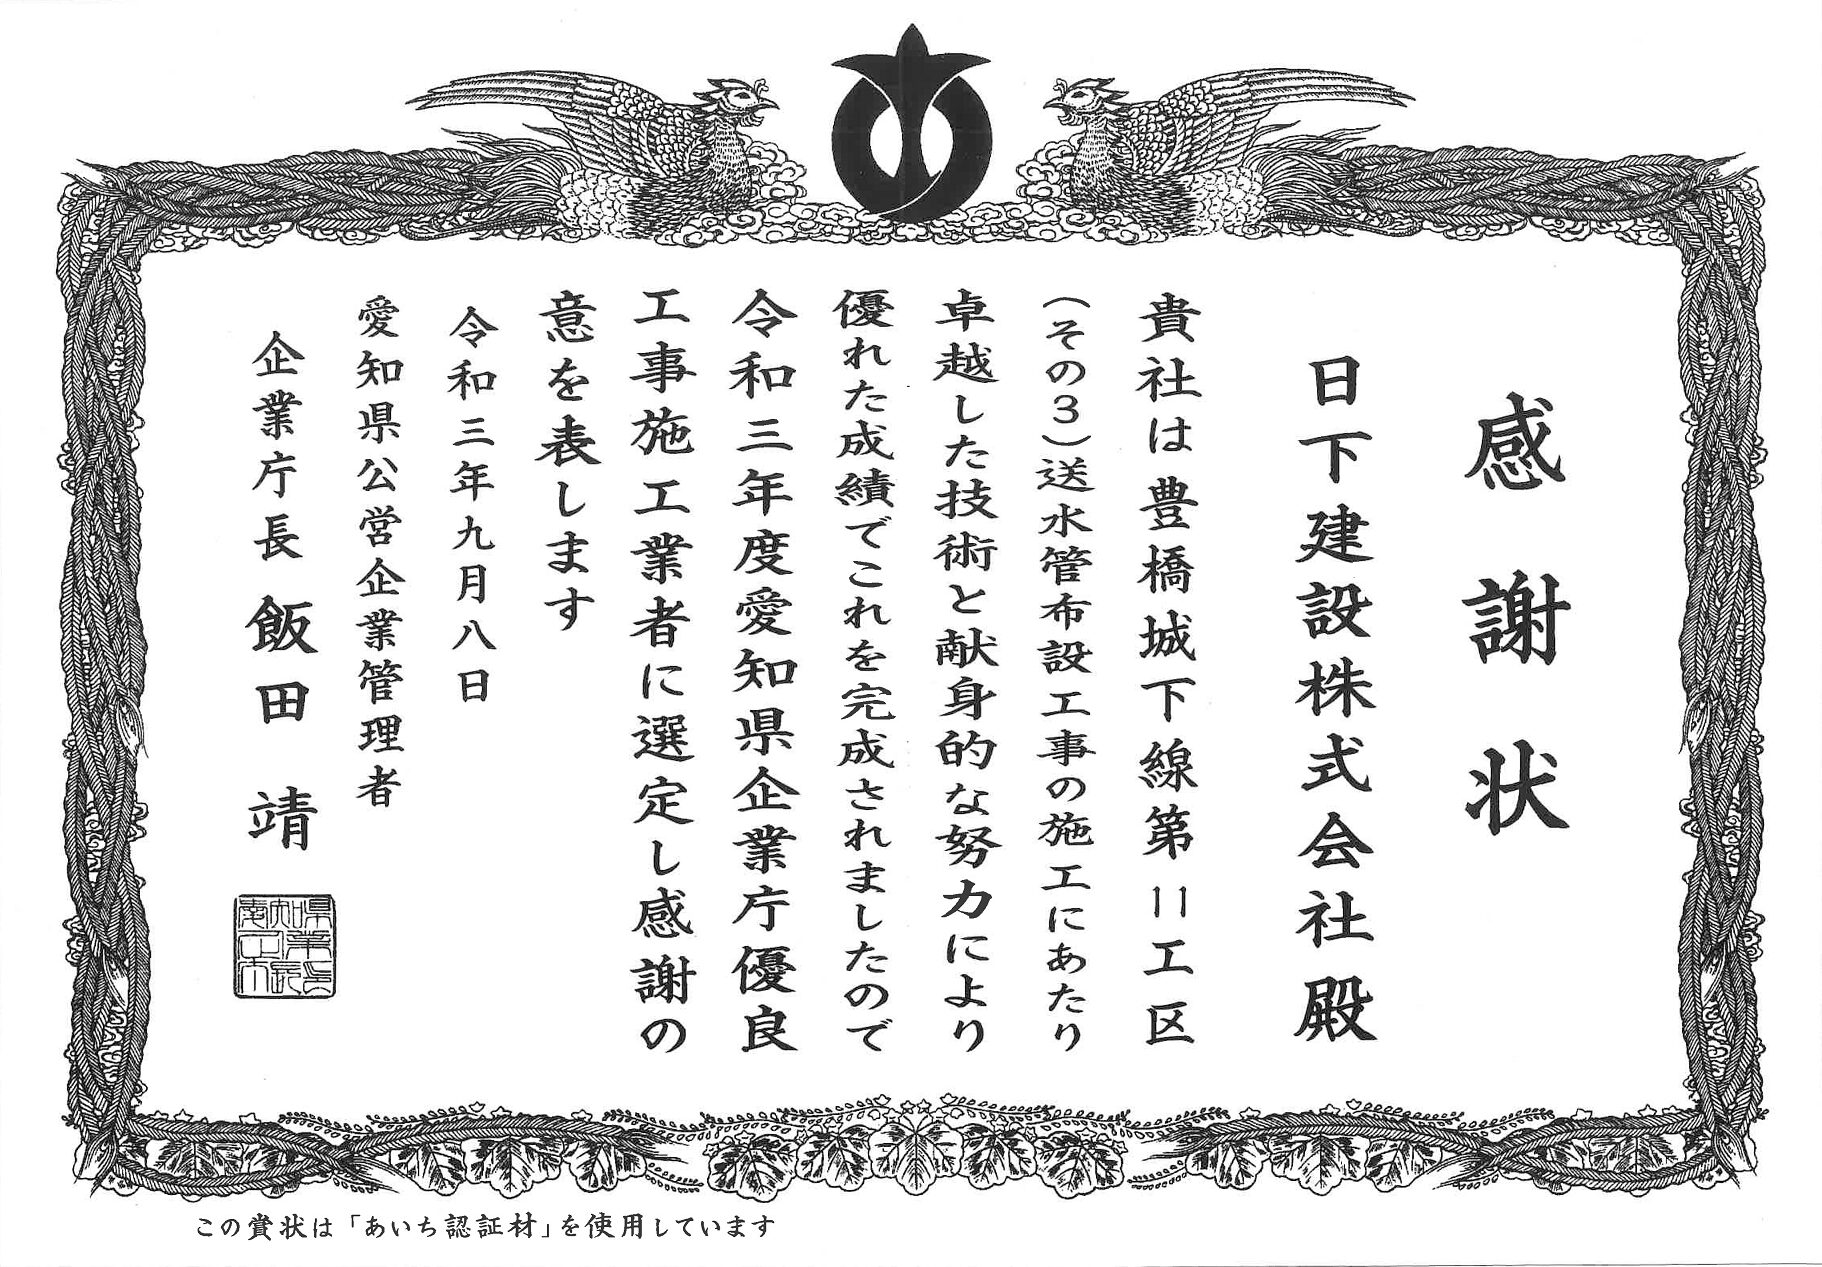 感謝状
日下建設株式会社殿
貴社は豊橋城下線第11工区
（その3）送水管布設工事の施工にあたり
卓越した技術と献身的な努力により
優れた成績でこれを完成されましたので
令和三年度愛知県企業庁優良
工事施工業者に選定し感謝の
意を表します
令和三年九月八日
愛知県公営企業管理者
企業庁長 飯田 靖
この賞状は「あいち認証材」を使用しています